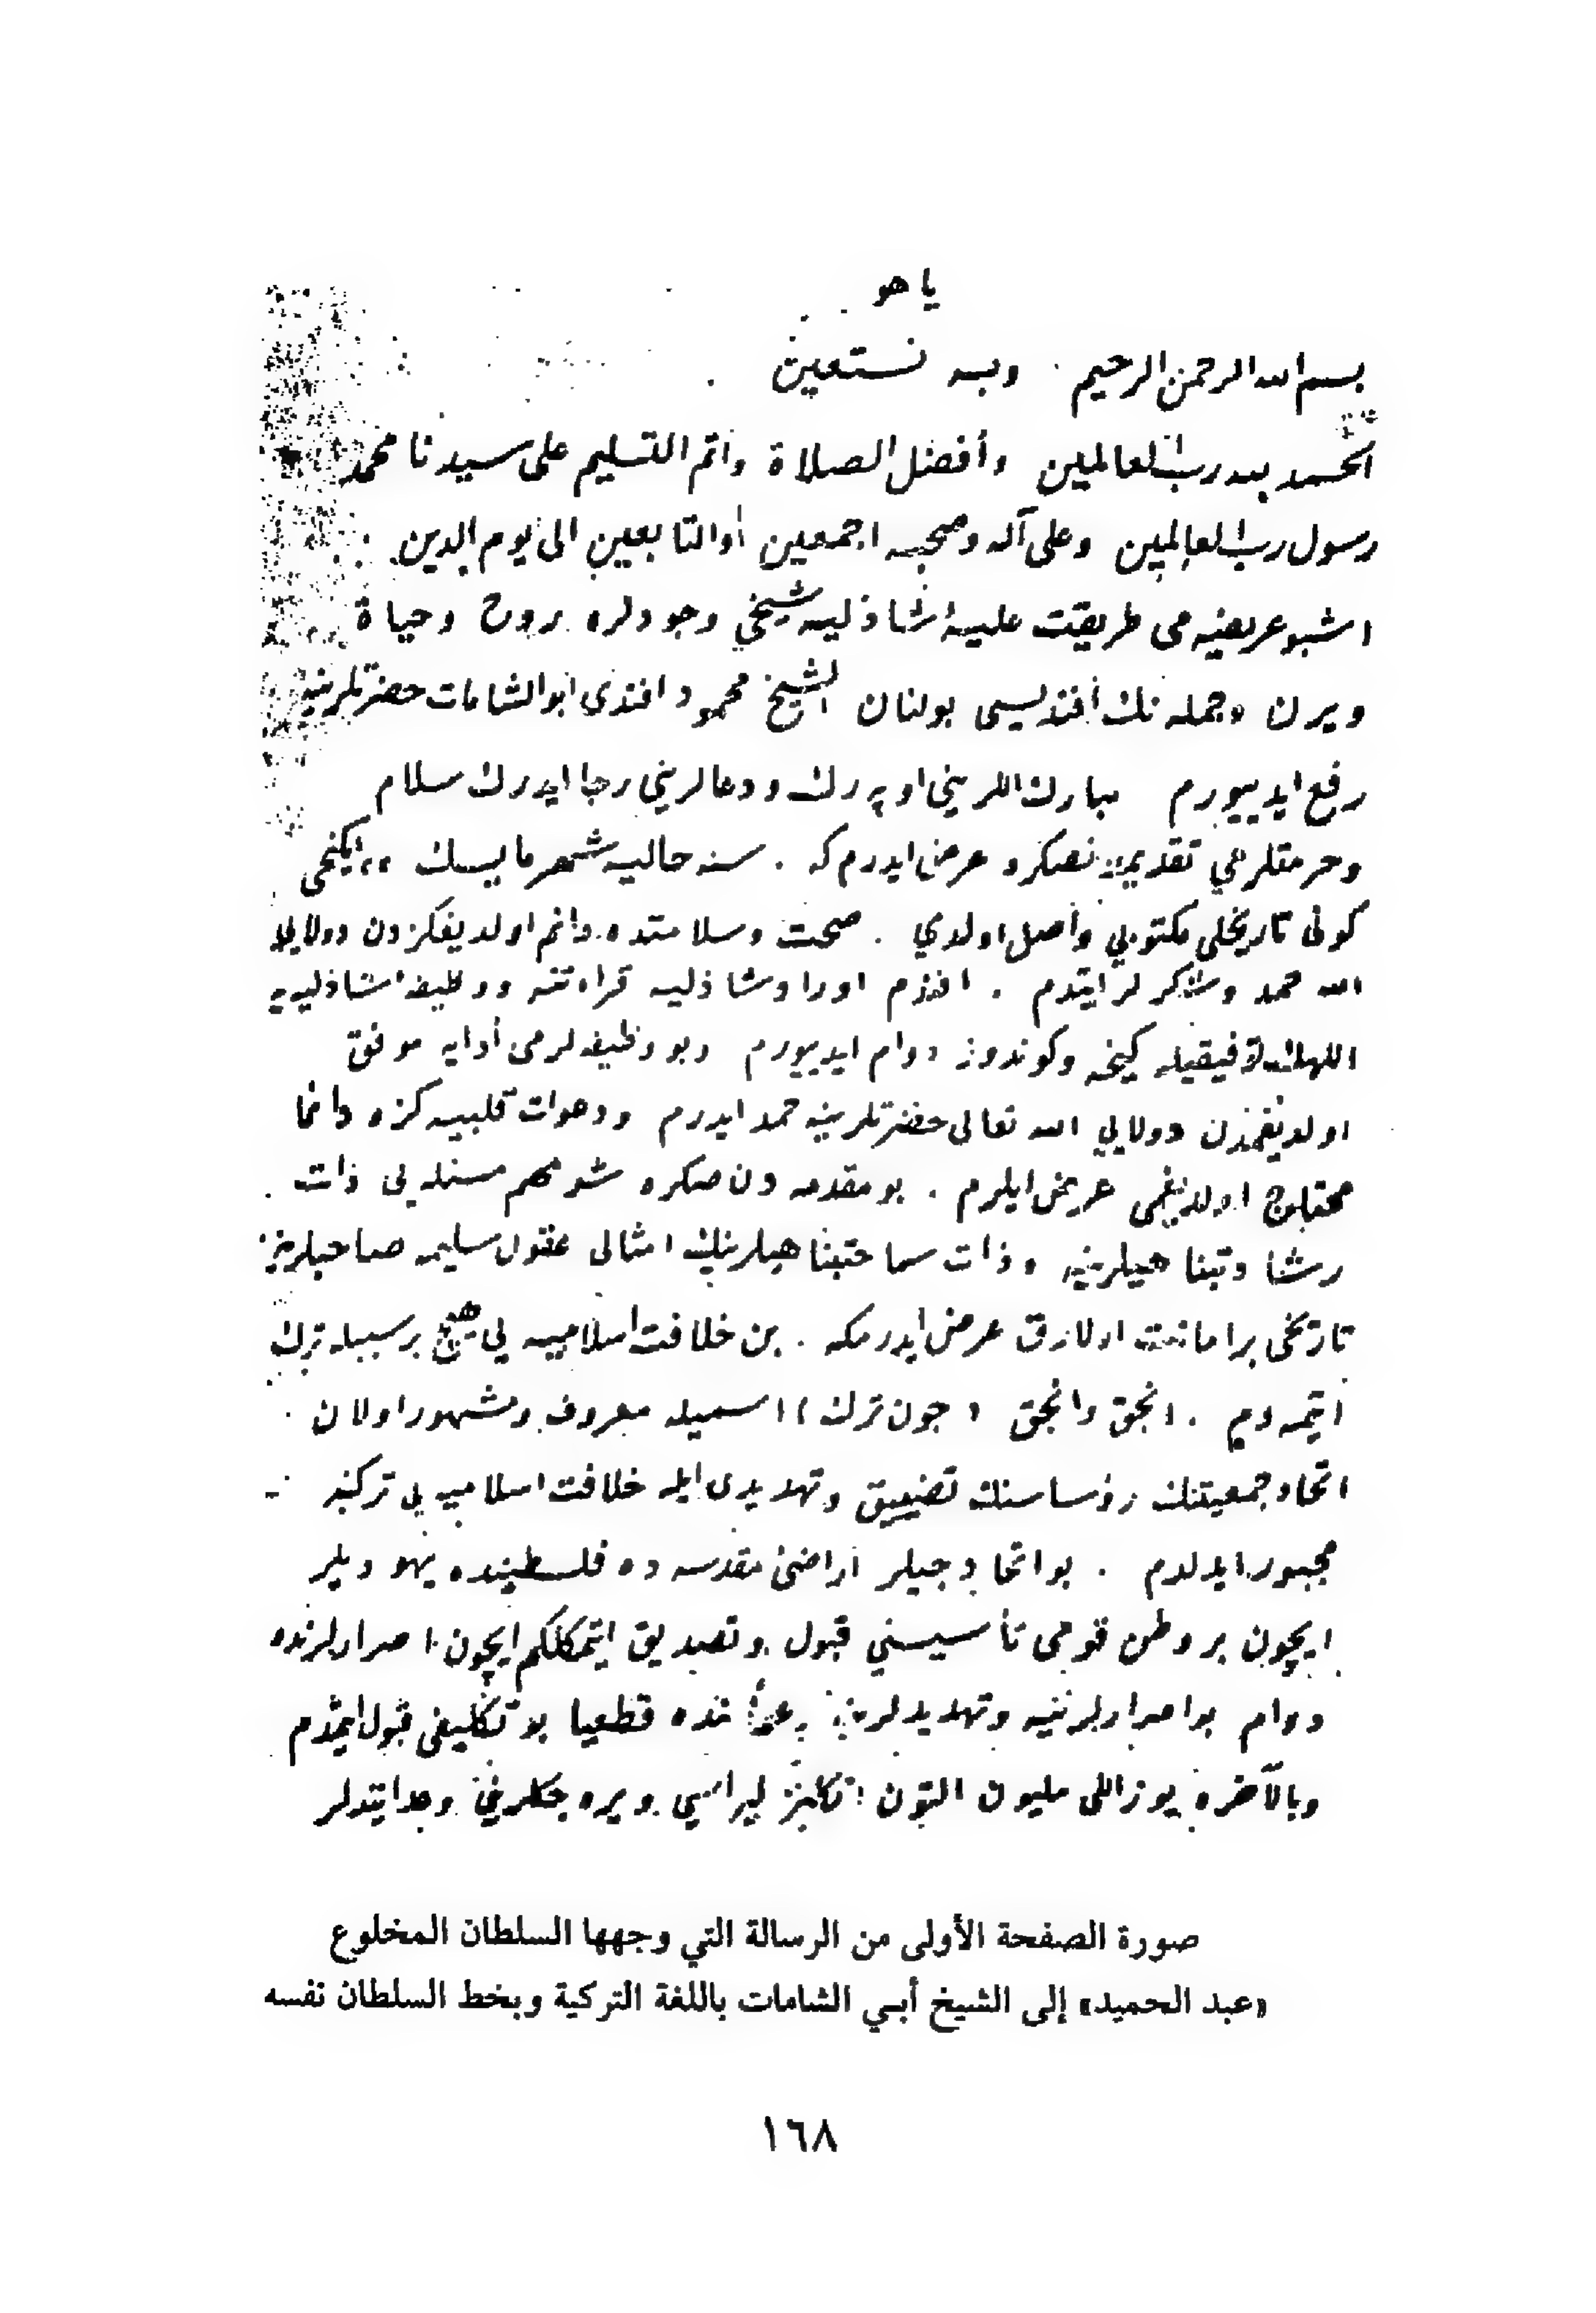 يا هو
بسم الله الرحمن الرحيم وبه نستعين
الحمد لله رب العالمين وأفضل الصلاة وأتم التسليم على سيدنا محمد
رسول رب العالمين وعلى آله وصحبه اجمعين والتابعين الى يوم الدين
اشبو عريضه مى طريقت عليهٔ شاذليه شيخي وجودلره روح وحياة
ويرن وجمله نك أفنديسى بولنان الشيخ محمود افندى ابو الشامات حضرتلرينه
رفع ايدييورم مبارك اللريني اوپه رك ودعالريني رجا ايدرك سلام
وحرمتلرمي تقديمدن صكره عرض ايدرم كه . سنه حاليه شهر مايسك ايكنجى
كونى تاريخلى مكتوبي واصل اولدي . صحت وسلامتده دائم اولديغكزدن دولايى
الله حمد وشكرلر ايتدم . افندم اوراد شاذليه قراءتنه ووظيفهٔ شاذليه يه
اللهك توفيقيله كيجه وكوندوز دوام ايدييورم وبو وظيفه لرمى أدايه موفق
اولديغمدن دولايي الله تعالى حضرتلرينه حمد ايدرم ودعوات قلبيه كزه دائما
محتاج اولديغمى عرض ايلرم . بو مقدمه دن صكره شو مهم مسئله يى ذات
رشادتپناهيلرينه وذات سماحتپناهيلرينك امثالى عقول سليمه صاحبلرينه
تاريخى بر امانت اولارق عرض ايدرمكه . بن خلافت اسلاميه يي هيچ بر سببله ترك
ايتمه دم . انجق وانجق (جون ترك) اسميله معروف ومشهور اولان
اتحاد جمعيتنك رؤساسنك تضييق وتهديدى ايله خلافت اسلاميه يى تركه
مجبور ايدلدم . بو اتحادجيلر اراضئ مقدسه ده فلسطينده يهوديلر
ايچون بر وطن قومى تأسيسني قبول وتصديق ايتمكلكم ايچون اصرارلرنده
دوام بو اصرارلرينه وتهديدلرينه رغماً بنده قطعيا بو تكليفى قبول ايتمدم
وبالآخره يوز اللى مليون التون انكليز ليراسي ويره جكلريني وعد ايتديلر
صورة الصفحة الأولى من الرسالة التي وجهها السلطان المخلوع
«عبد الحميد» إلى الشيخ أبي الشامات باللغة التركية وبخط السلطان نفسه
١٦٨